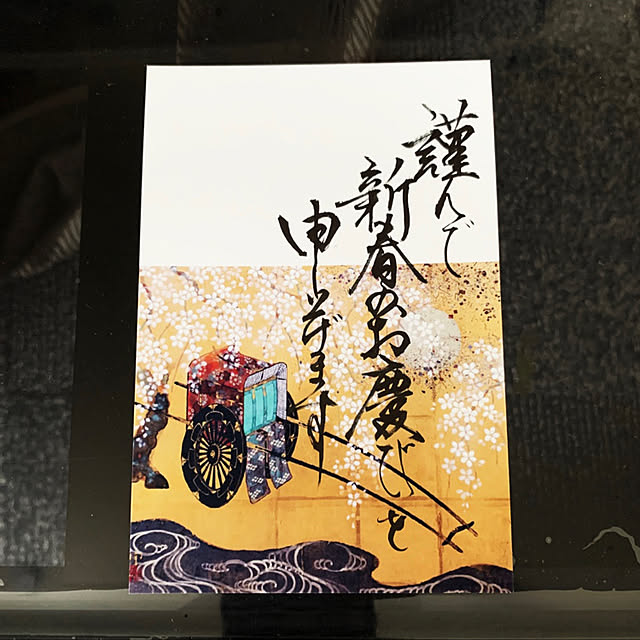 謹んで
新春のお慶びを
申し上げます